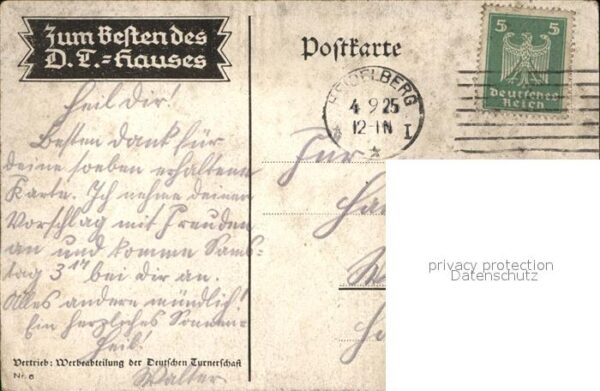 Zum Besten des
D. T.-Hauses
Postkarte
5 5
Deutsches
Reich
HEIDELBERG
4.9.25
12-1N
I
Heil dir!
Besten Dank für
deine soeben erhaltene
Karte. Ich nehme deinen
Vorschlag mit Freuden
an und komme Sams-
tag 3 bei dir an.
Alles andere mündlich!
Ein herzliches Sonnen-
Heil!
Walter
Vertrieb: Werbeabteilung der Deutschen Turnerschaft
Nr. 6
privacy protection
Datenschutz